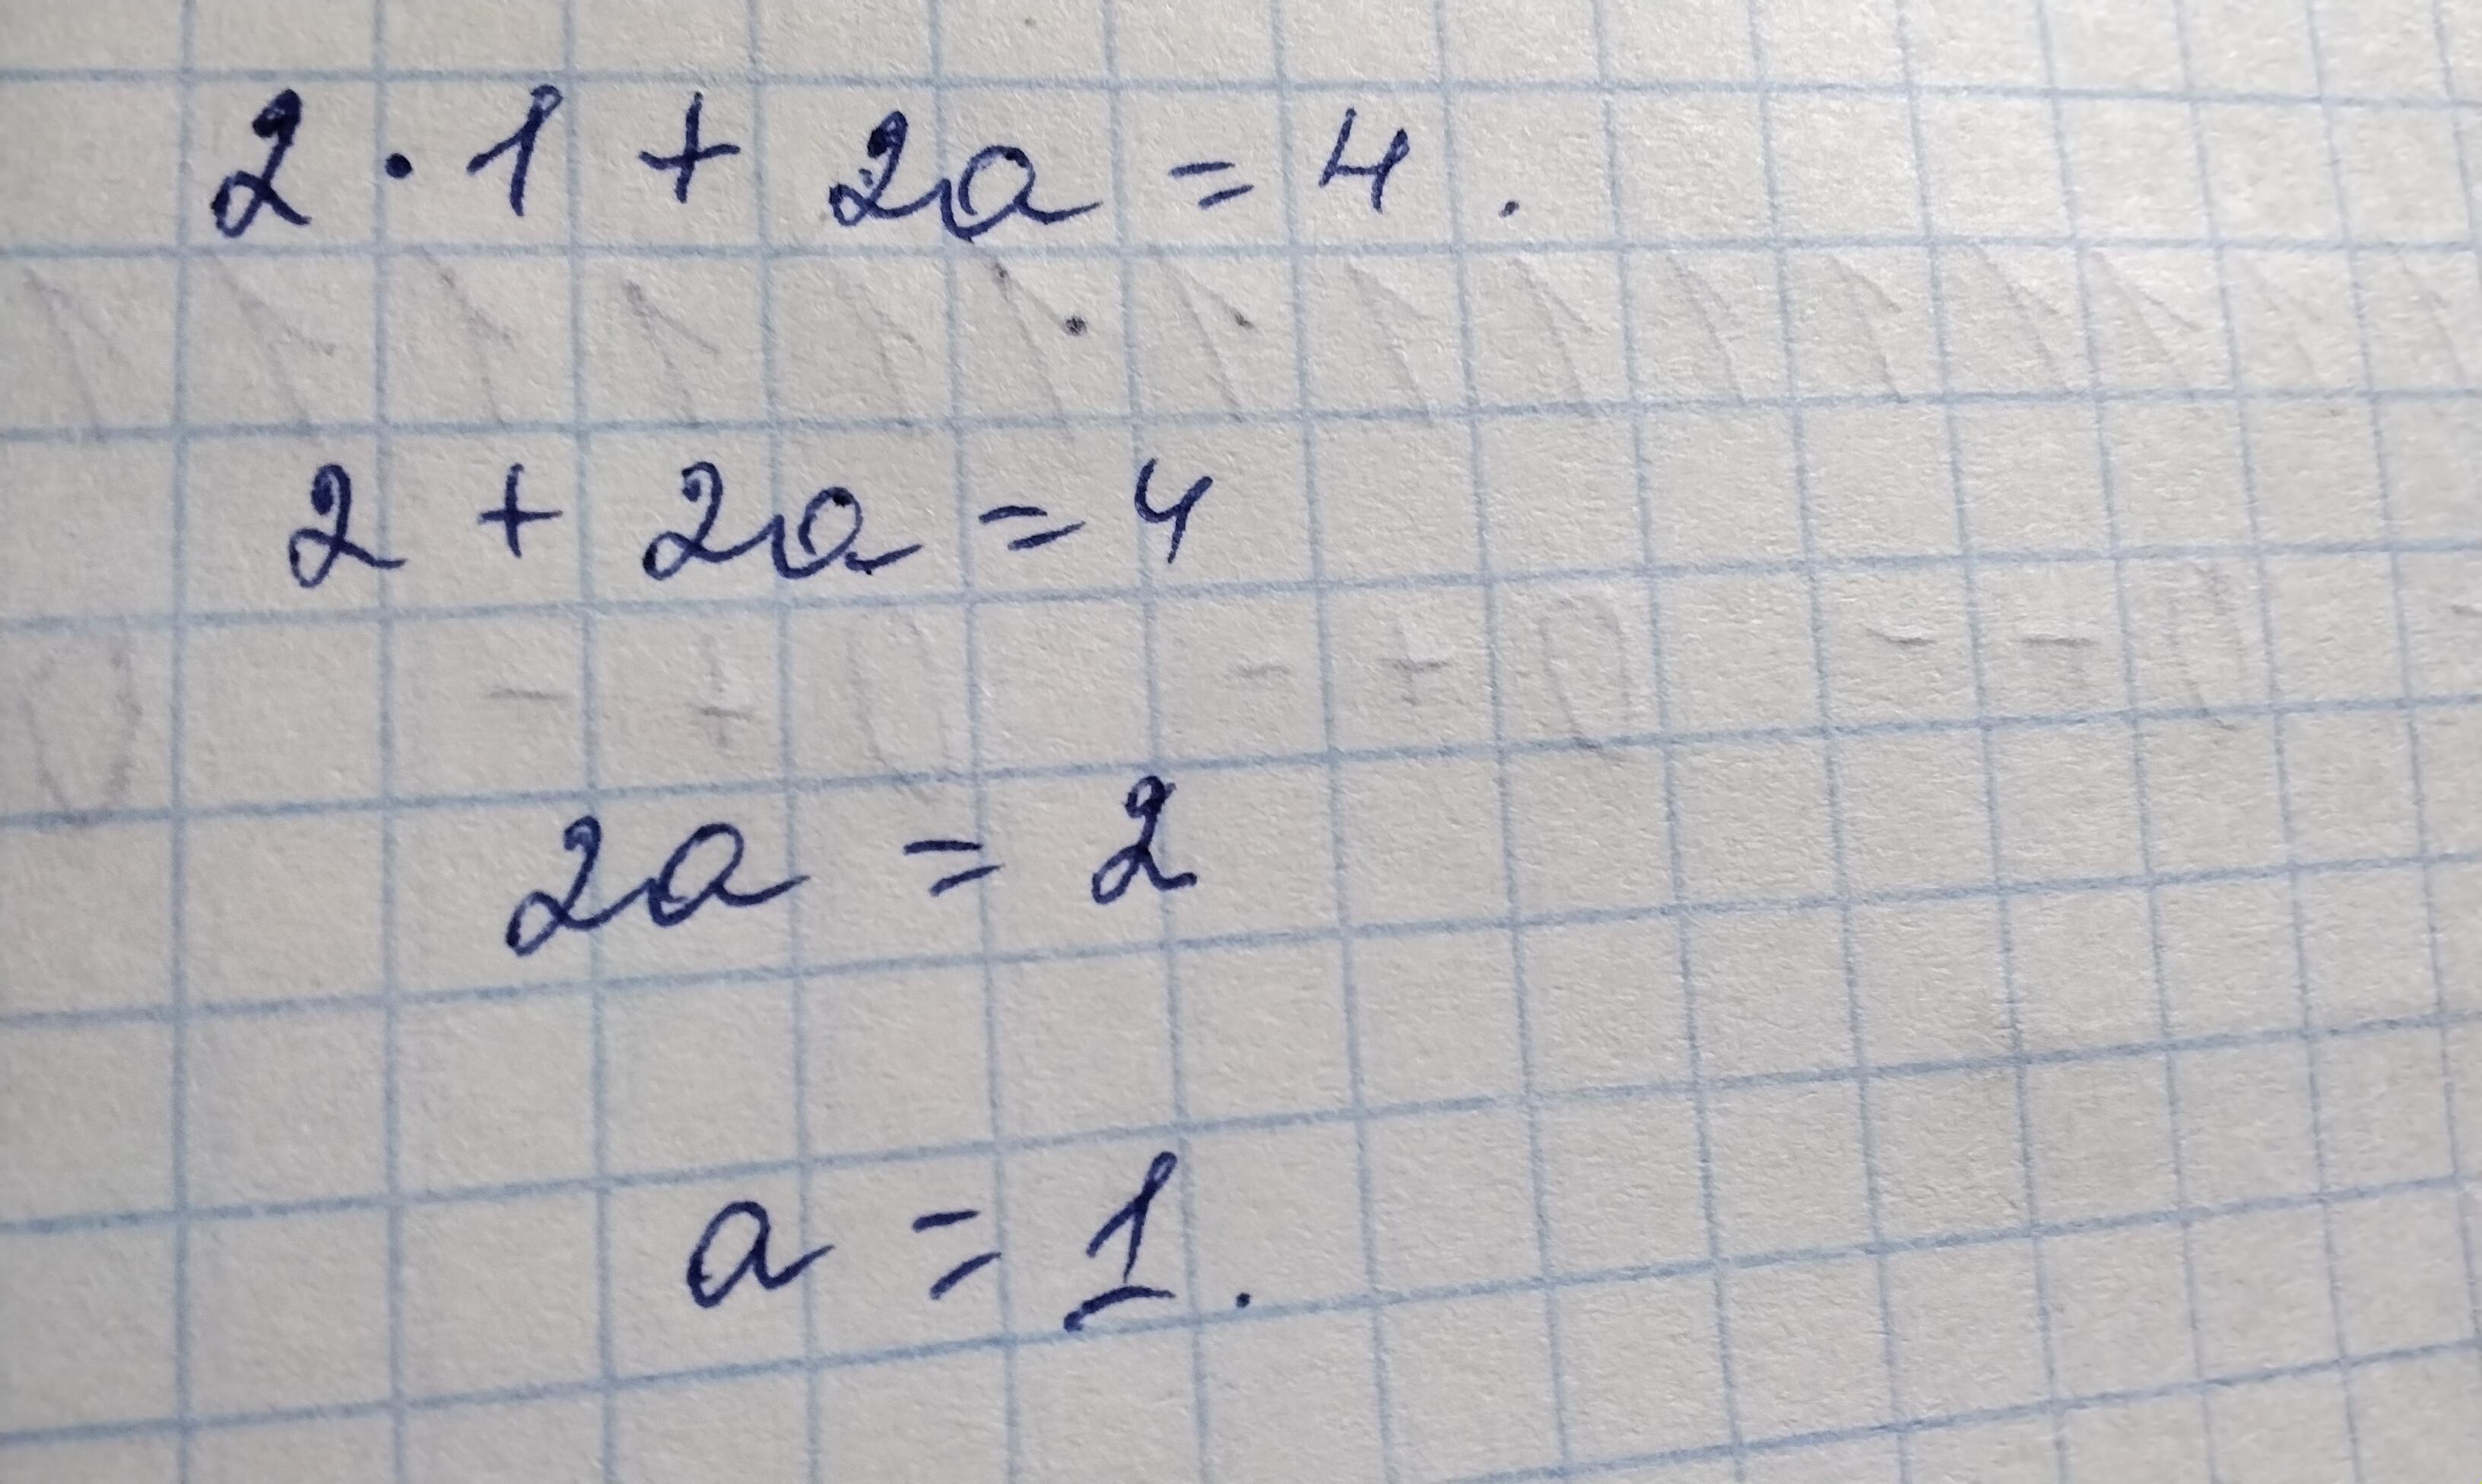 2 · 1 + 2a = 4 .
2 + 2a = 4
2a = 2
a = 1 .